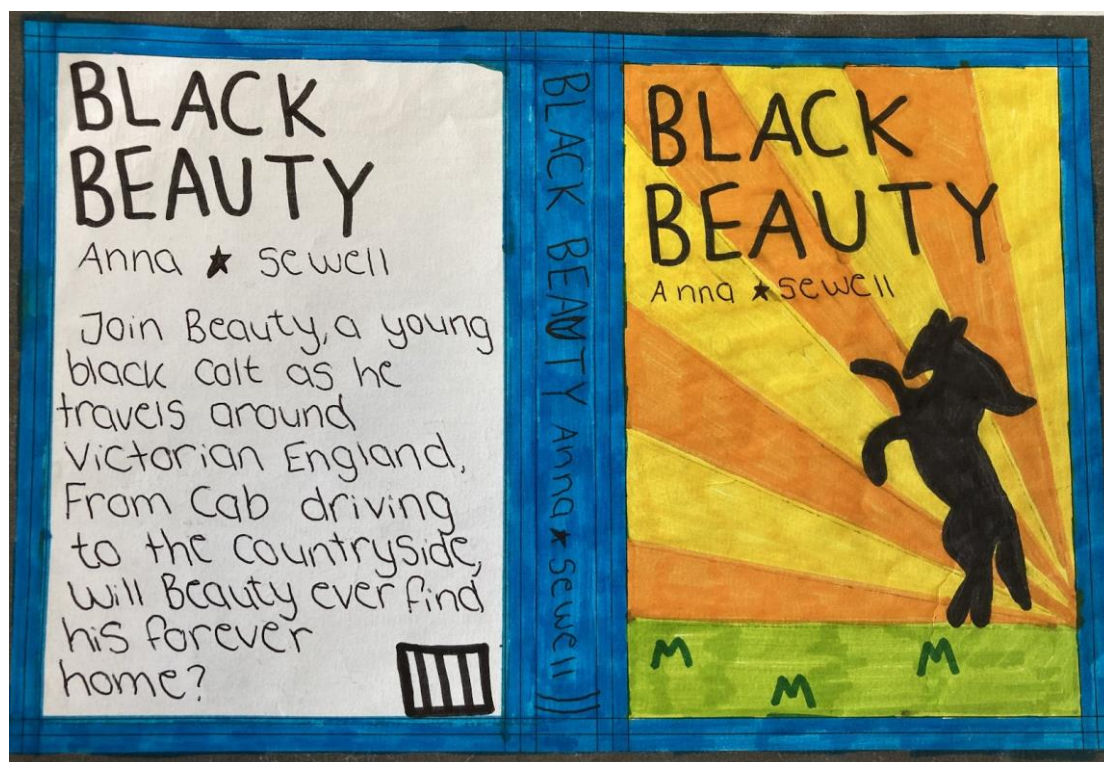 BLACK
BEAUTY
Anna ★ Sewell
Join Beauty, a young
black colt as he
travels around
Victorian England,
From Cab driving
to the countryside,
will Beauty ever find
his forever
home?
BLACK BEAUTY Anna ★ Sewell
BLACK
BEAUTY
Anna ★ Sewell